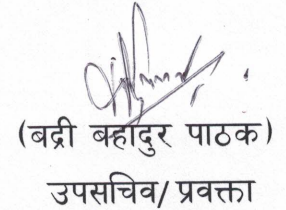 (बद्री बहादुर पाठक)
उपसचिव/ प्रवक्ता